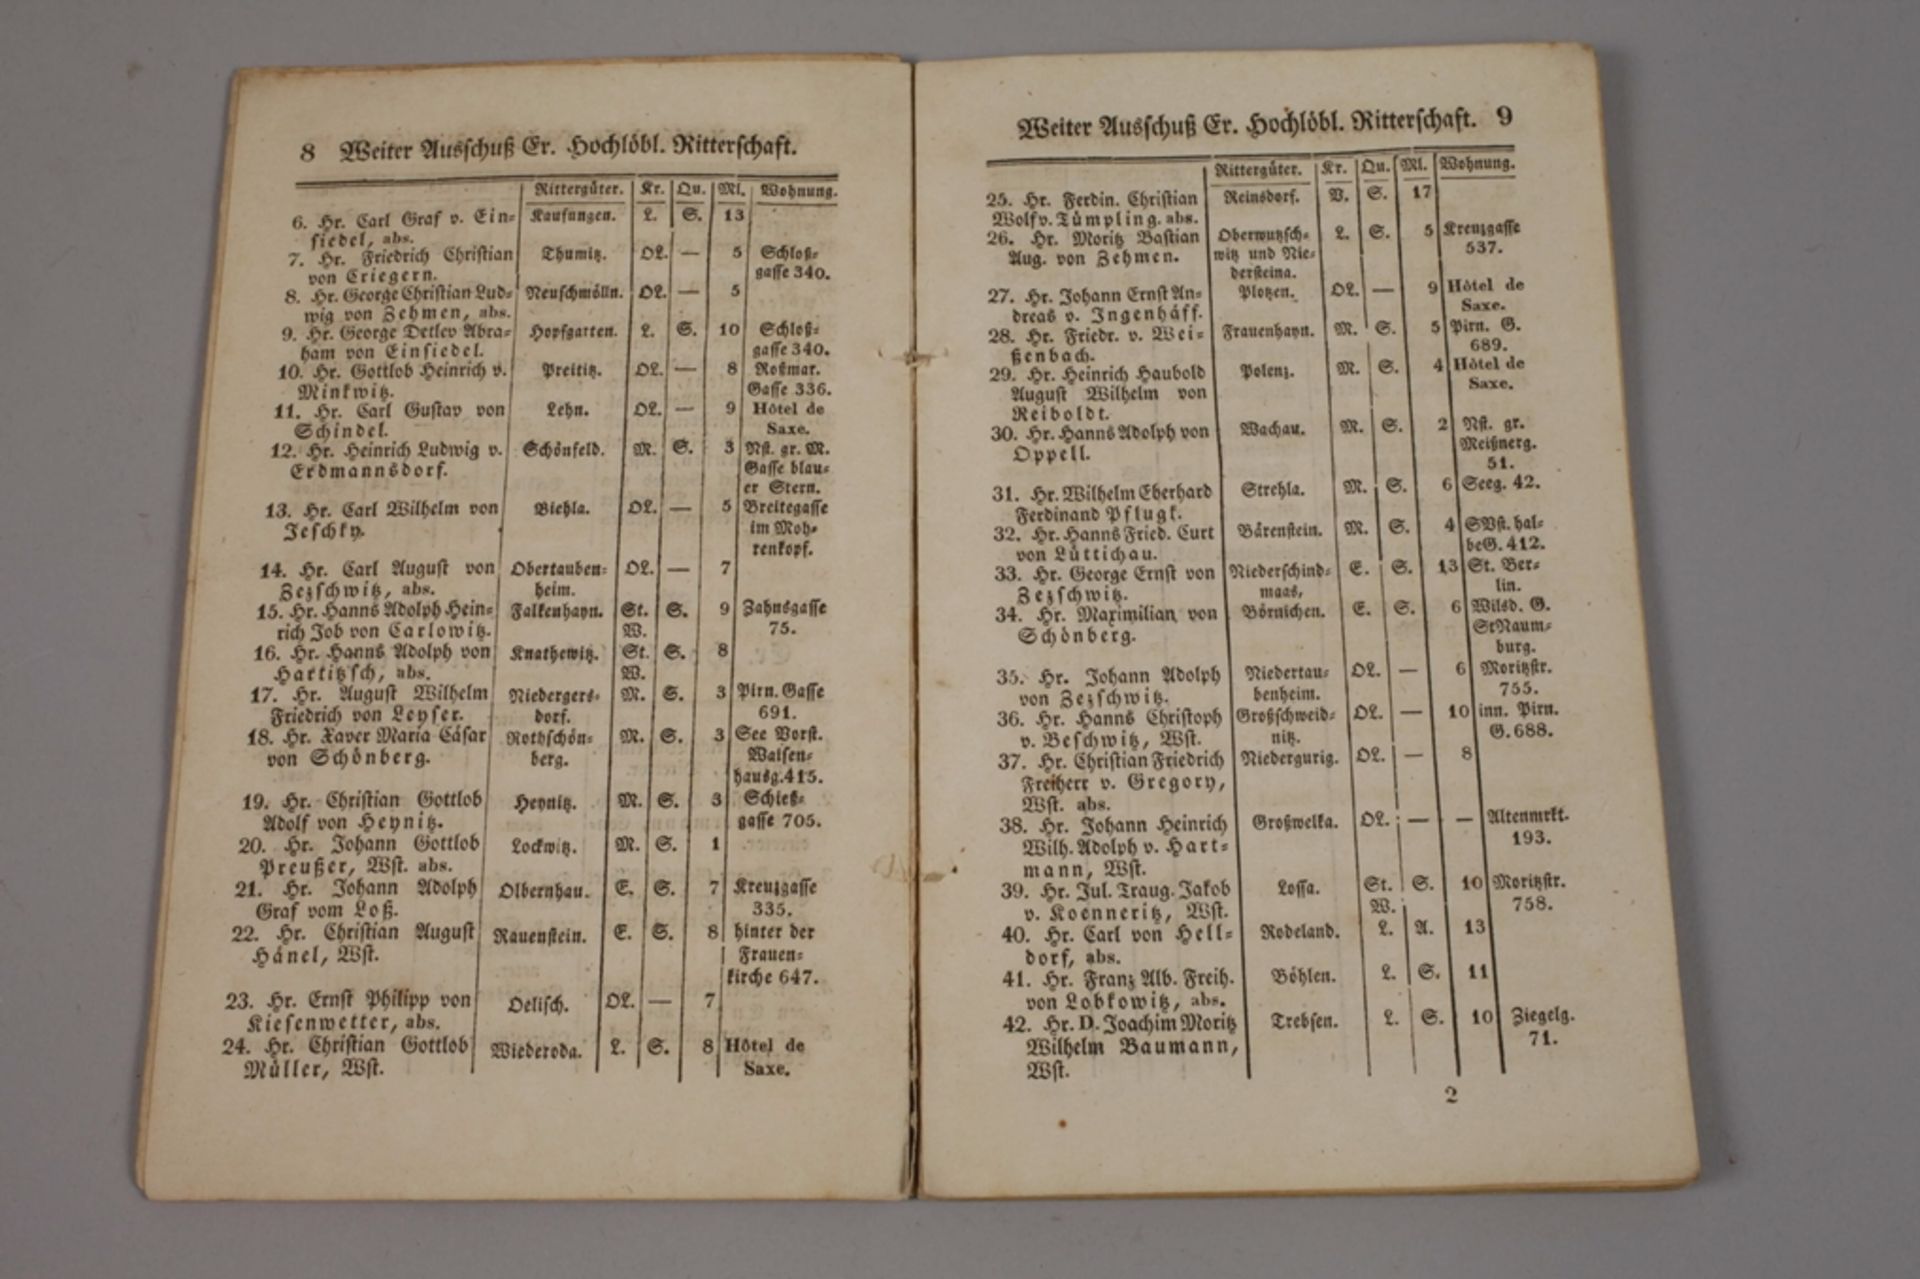 8 Weiter Ausschuß Er. Hochlöbl. Ritterschaft.
Rittergüter. Kr. Qu. Ml. Wohnung.
6. Hr. Carl Graf v. Ein- Kaufungen. L. S. 13
siedel, abs.
7. Hr. Friedrich Christian Thumitz. OL. — 5 Schloß-
von Criegern. gasse 340.
8. Hr. George Christian Lud- Neuschmölln. OL. — 5
wig von Zehmen, abs.
9. Hr. George Detlev Abra- Hopfgarten. L. S. 10 Schloß-
ham von Einsiedel. gasse 340.
10. Hr. Gottlob Heinrich v. Preititz. OL. — 8 Roßmar.
Minkwitz. Gasse 336.
11. Hr. Carl Gustav von Lehn. OL. — 9 Hôtel de
Schindel. Saxe.
12. Hr. Heinrich Ludwig v. Schönfeld. M. S. 3 Nst. gr. M.
Erdmannsdorf. Gasse blau-
er Stern.
13. Hr. Carl Wilhelm von Biehla. OL. — 5 Breitegasse
Jeschky. im Moh-
renkopf.
14. Hr. Carl August von Obertauben- OL. — 7
Zezschwitz, abs. heim.
15. Hr. Hanns Adolph Hein- Falkenhayn. St. S. 9 Zahnsgasse
rich Job von Carlowitz. W. 75.
16. Hr. Hanns Adolph von Knathewitz. St. S. 8
Hartitzsch, abs. W.
17. Hr. August Wilhelm Niedergers- M. S. 3 Pirn. Gasse
Friedrich von Leyser. dorf. 691.
18. Hr. Xaver Maria Cäsar Rothschön- M. S. 3 See Vorst.
von Schönberg. berg. Waisen-
hausg. 415.
19. Hr. Christian Gottlob Heynitz. M. S. 3 Schieß-
Adolf von Heynitz. gasse 705.
20. Hr. Johann Gottlob Lockwitz. M. S. 1
Preußer, Wst. abs.
21. Hr. Johann Adolph Olbernhau. E. S. 7 Kreuzgasse
Graf vom Loß. 335.
22. Hr. Christian August Rauenstein. E. S. 8 hinter der
Hänel, Wst. Frauen-
kirche 647.
23. Hr. Ernst Philipp von Oelisch. OL. — 7
Kiesenwetter, abs.
24. Hr. Christian Gottlob Wiederoda. L. S. 8 Hôtel de
Müller, Wst. Saxe.
Weiter Ausschuß Er. Hochlöbl. Ritterschaft. 9
Rittergüter. Kr. Qu. Ml. Wohnung.
25. Hr. Ferdin. Christian Reinsdorf. V. S. 17
Wolf v. Tümpling. abs.
26. Hr. Moritz Bastian Oberwutzsch- L. S. 5 Kreuzgasse
Aug. von Zehmen. witz und Nie- 537.
dersteina.
27. Hr. Johann Ernst An- Plotzen. OL. — 9 Hôtel de
dreas v. Ingenhäff. Saxe.
28. Hr. Friedr. v. Wei- Frauenhayn. M. S. 5 Pirn. G.
ßenbach. 689.
29. Hr. Heinrich Haubold Polenz. M. S. 4 Hôtel de
August Wilhelm von Saxe.
Reiboldt.
30. Hr. Hanns Adolph von Wachau. M. S. 2 Nst. gr.
Oppell. Meißnerg.
51.
31. Hr. Wilhelm Eberhard Strehla. M. S. 6 Seeg. 42.
Ferdinand Pflugk.
32. Hr. Hanns Fried. Curt Bärenstein. M. S. 4 SVst. hal-
von Lüttichau. be G. 412.
33. Hr. George Ernst von Niederschind- E. S. 13 St. Ber-
Zezschwitz. maas, lin.
34. Hr. Maximilian von Börnichen. E. S. 6 Wilsd. G.
Schönberg. St Naum-
burg.
35. Hr. Johann Adolph Niedertau- OL. — 6 Moritzstr.
von Zezschwitz. benheim. 755.
36. Hr. Hanns Christoph Großschweid- OL. — 10 inn. Pirn.
v. Beschwitz, Wst. nitz. G. 688.
37. Hr. Christian Friedrich Niedergurig. OL. — 8
Freiherr v. Gregory,
Wst. abs.
38. Hr. Johann Heinrich Großwelka. OL. — — Altenmrkt.
Wilh. Adolph v. Hart- 193.
mann, Wst.
39. Hr. Jul. Traug. Jakob Lossa. St. S. 10 Moritzstr.
v. Koenneritz, Wst. W. 758.
40. Hr. Carl von Hell- Rodeland. L. A. 13
dorf, abs.
41. Hr. Franz Alb. Freih. Böhlen. L. S. 11
von Lobkowitz, abs.
42. Hr. D. Joachim Moritz Trebsen. L. S. 10 Ziegelg.
Wilhelm Baumann, 71.
Wst.
2